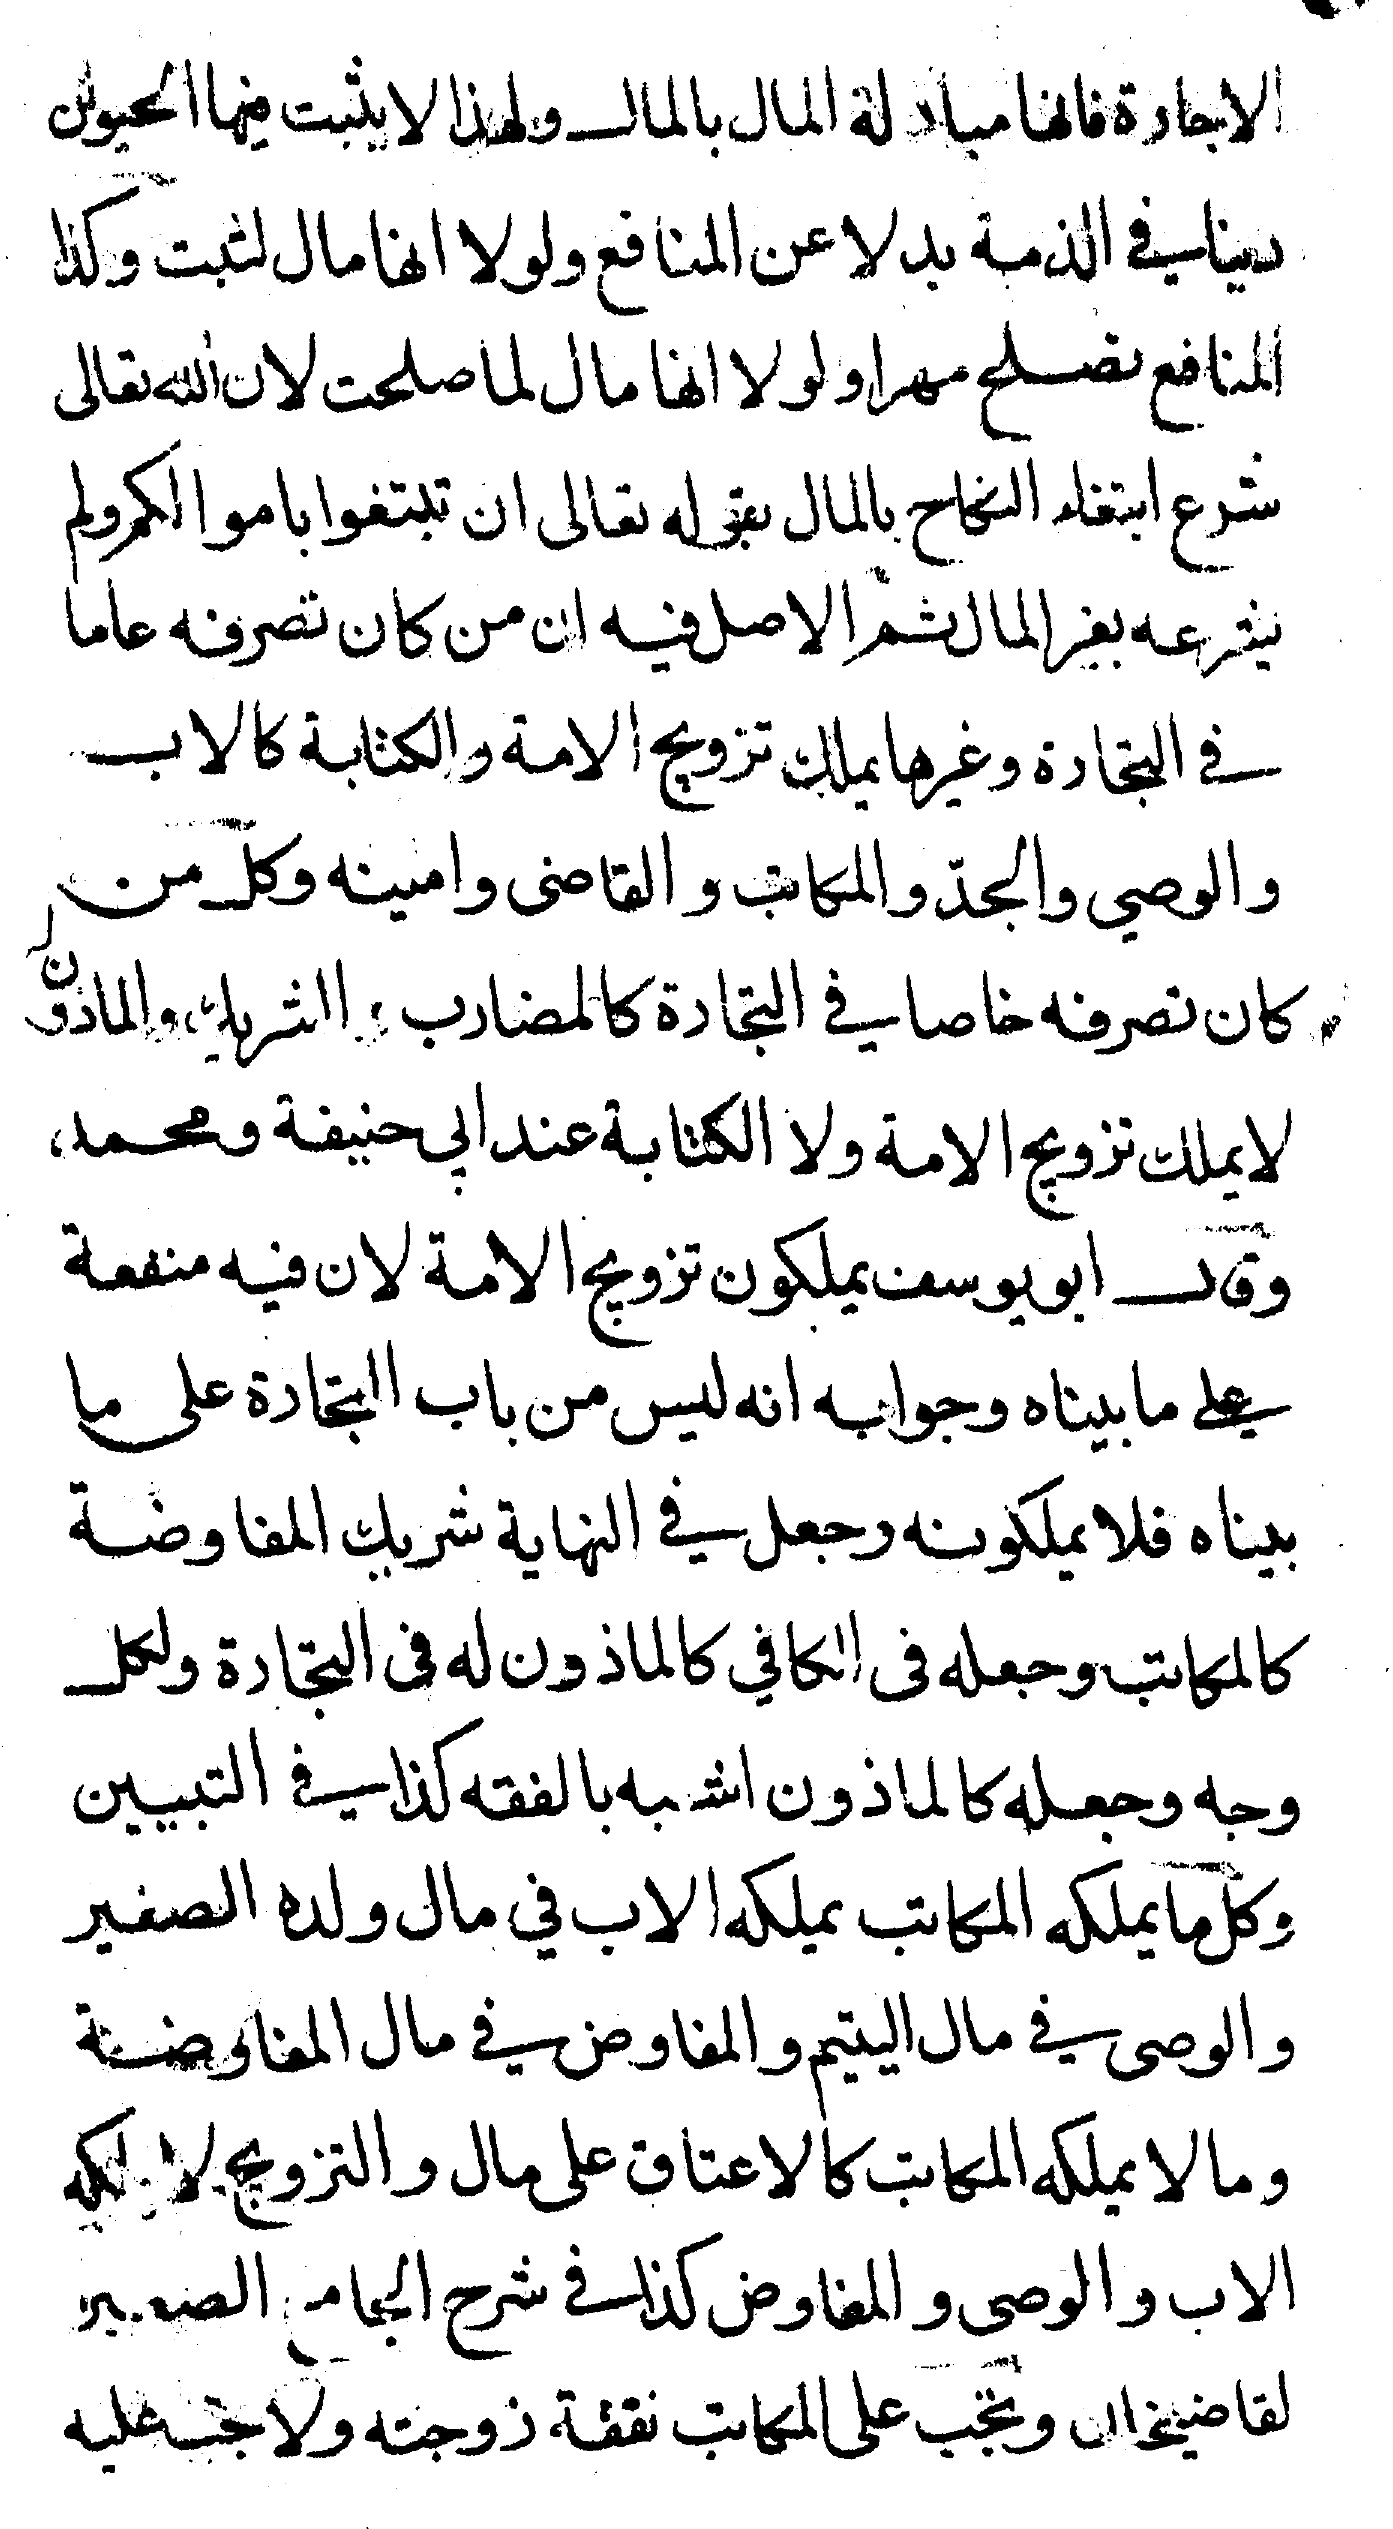 الاجارة فانها مبادلة المال بالمال ولهذا لا يثبت فيها الحيوان
دينا في الذمة بدلا عن المنافع ولولا انها مال لثبت وكذا
المنافع تصلح مهرا ولولا انها مال لما صلحت لان الله تعالى
شرع ابتغاء النكاح بالمال بقوله تعالى ان تبتغوا باموالكم ولم
يشرعه بغير المال ثم الاصل فيه ان من كان تصرفه عاما
في التجارة وغيرها يملك تزويج الامة والكتابة كالاب
والوصي والجدّ والمكاتب والقاضى وامينه وكل من
كان تصرفه خاصا في التجارة كالمضارب والشريك والماذون
لا يملك تزويج الامة ولا الكتابة عند ابي حنيفة ومحمد،
وقال ابو يوسف يملكون تزويج الامة لان فيه منفعة
على ما بيناه وجوابه انه ليس من باب التجارة على ما
بيناه فلا يملكونه وجعل في النهاية شريك المفاوضة
كالمكاتب وجعله فى الكافي كالماذون له فى التجارة ولكل
وجه وجعله كالماذون اشبه بالفقه كذا في التبيين
وكل ما يملكه المكاتب يملكه الاب في مال ولده الصغير
والوصى في مال اليتيم والمفاوض في مال المفاوضة
وما لا يملكه المكاتب كالاعتاق على مال والتزويج لا يملكه
الاب والوصى والمفاوض كذا في شرح الجامع الصغير
لقاضيخان وتجب على المكاتب نفقة زوجته ولا تجب عليه